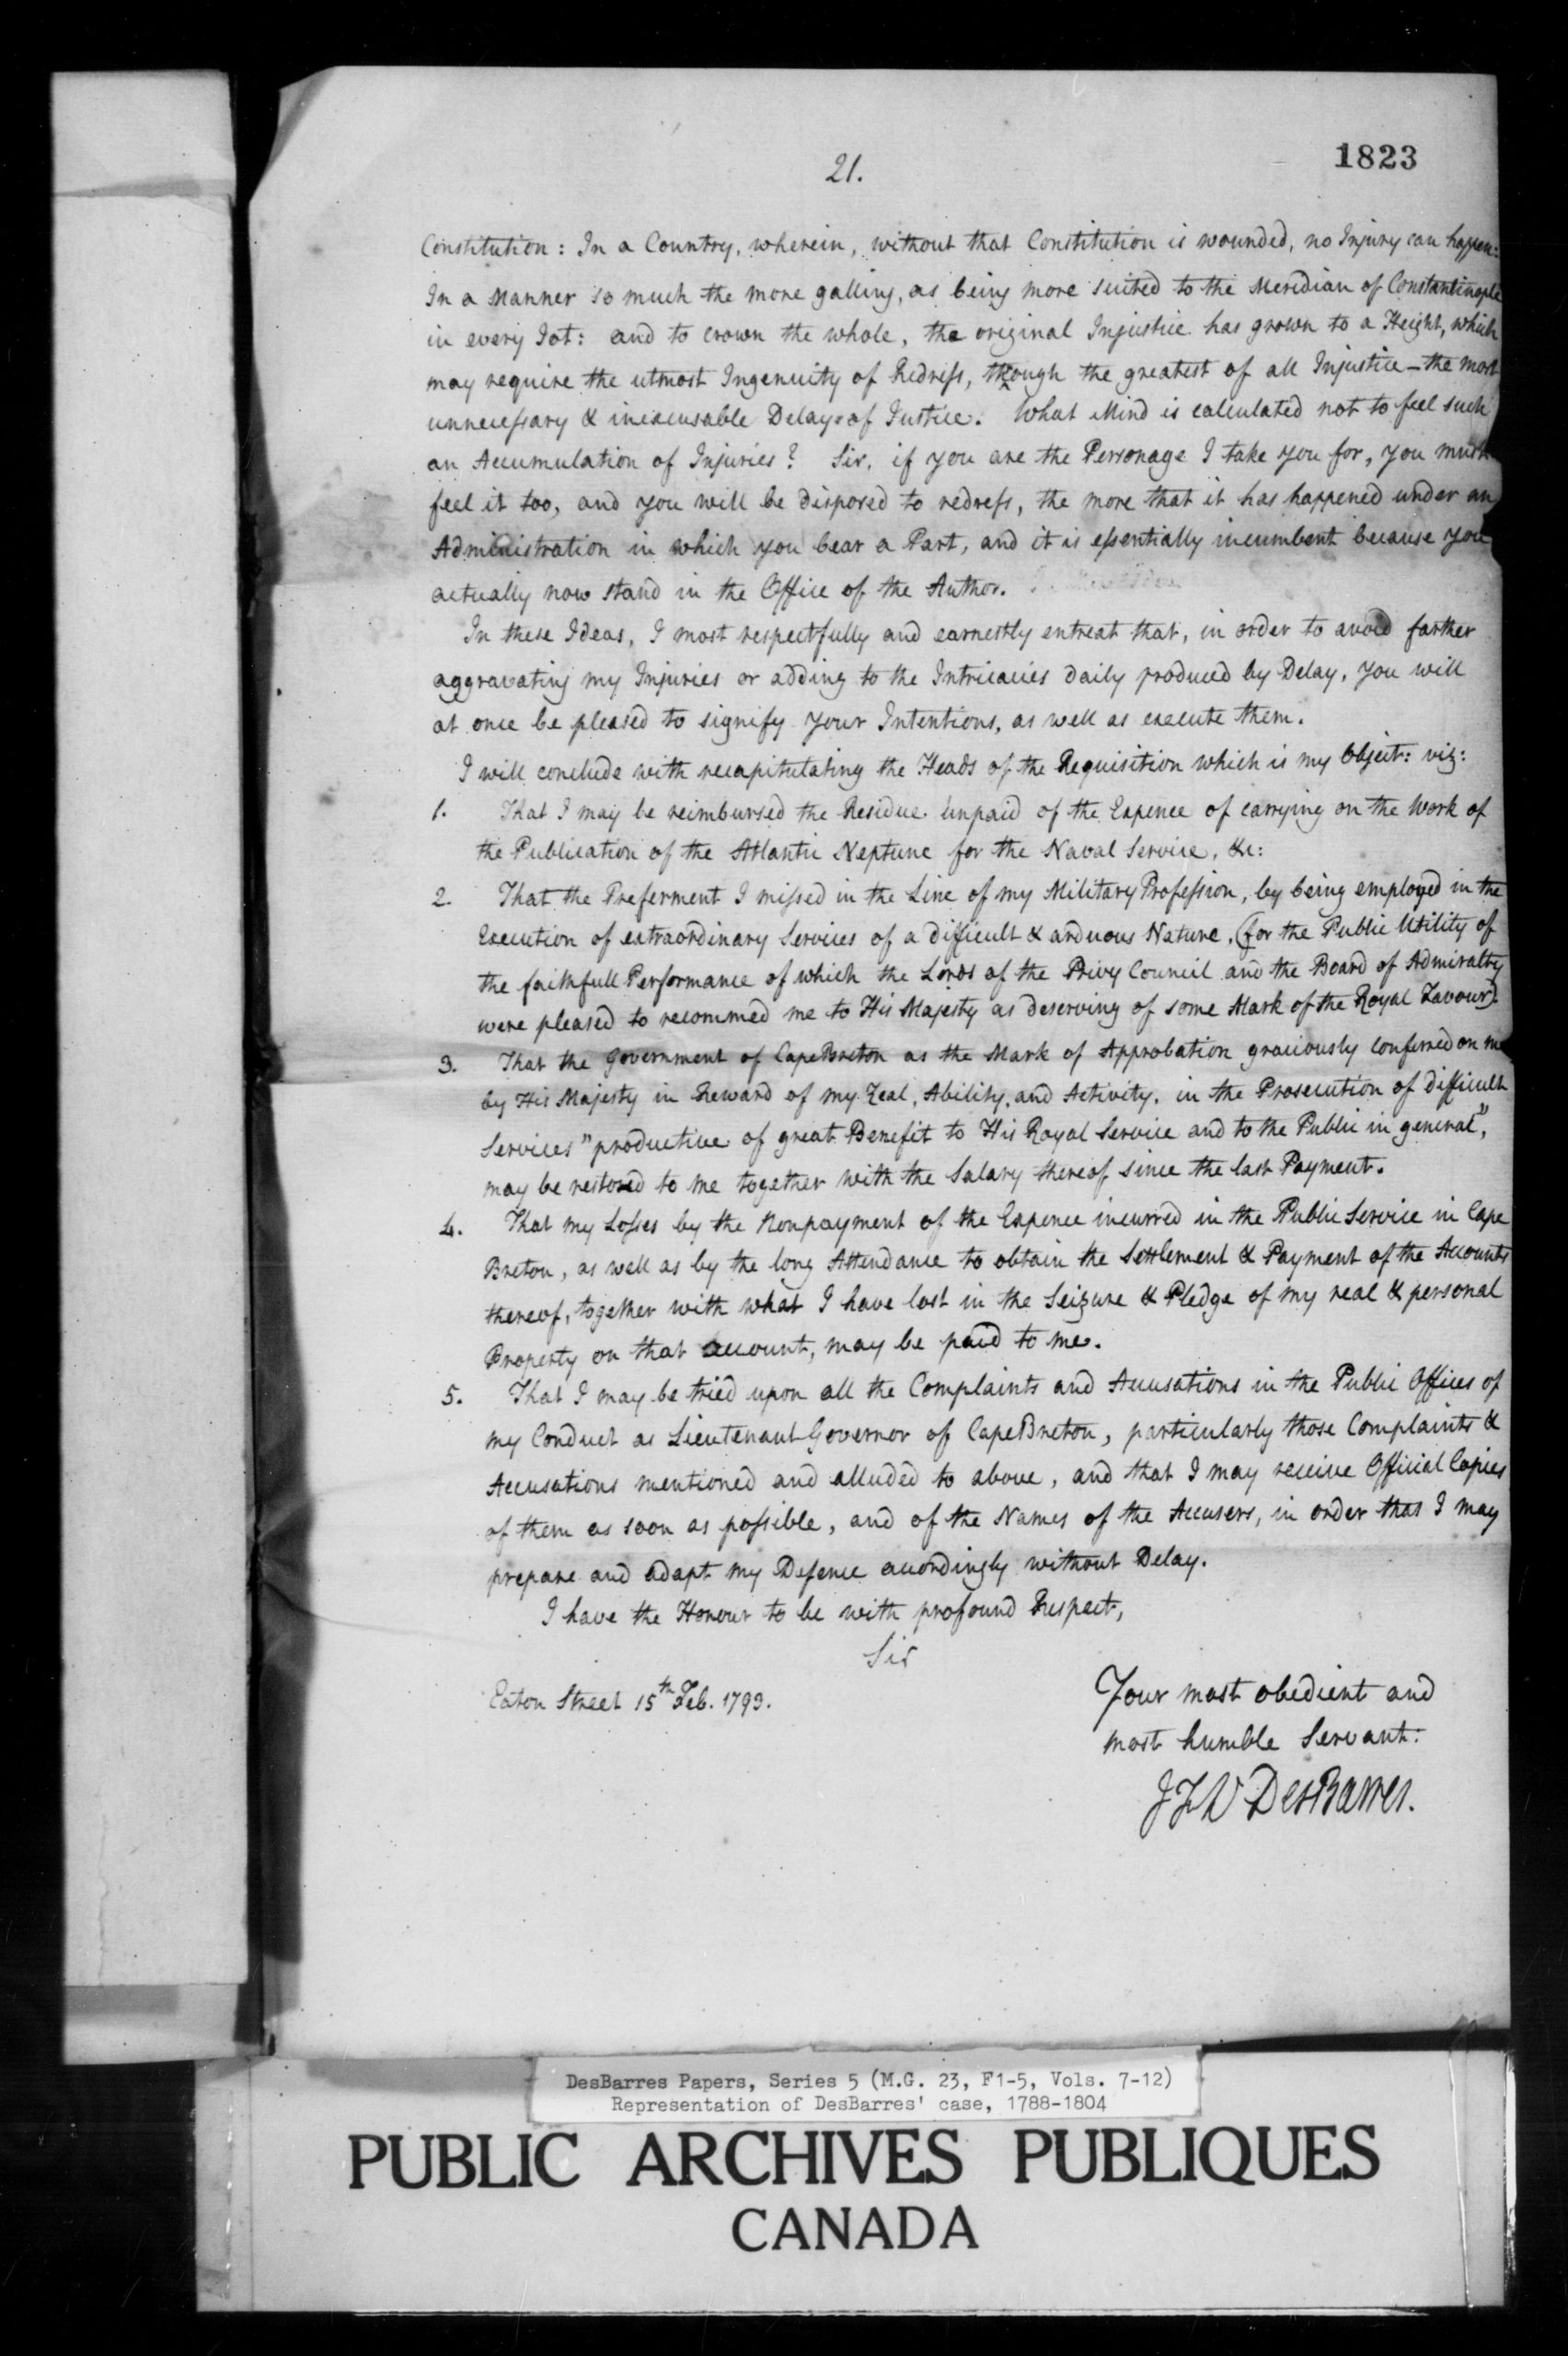 21.
1823
Constitution: In a Country, wherein, without that Constitution is wounded, no Injury can happen:
In a Manner so much the more galling, as being more suited to the Meridian of Constantinople
in every Iot: and to crown the whole, the original Injustice has grown to a Height, which
may require the utmost Ingenuity of Redress, through the greatest of all Injustice – the most
unnecessary & inexcusable Delays of Justice. What Mind is calculated not to feel such
an Accumulation of Injuries? Sir, if you are the Personage I take you for, you must
feel it too, and you will be disposed to redress, the more that it has happened under an
Administration in which you bear a Part, and it is essentially incumbent because you
actually now stand in the Office of the Author.
In these Ideas, I most respectfully and earnestly entreat that, in order to avoid farther
aggravating my Injuries or adding to the Intricacies daily produced by Delay, you will
at once be pleased to signify your Intentions, as well as execute them.
I will conclude with recapitulating the Heads of the Requisition which is my Object: viz:
1. That I may be reimbursed the Residue Unpaid of the Expence of carrying on the Work of
the Publication of the Atlantic Neptune for the Naval Service, &c:
2. That the Preferment I missed in the Line of my Military Profession, by being employed in the
Execution of extraordinary Services of a difficult & arduous Nature, (for the Public Utility of
the faithfull Performance of which the Lords of the Privy Council and the Board of Admiralty
were pleased to recommed me to His Majesty as deserving of some Mark of the Royal Favour).
3. That the Government of Cape Breton as the Mark of Approbation graciously conferred on me
by His Majesty in Reward of my Zeal, Ability, and Activity, in the Prosecution of difficult
Services "productive of great Benefit to His Royal Service and to the Public in general",
may be restored to me together with the Salary thereof since the last Payment.
4. That my Losses by the Nonpayment of the Expence incurred in the Public Service in Cape
Breton, as well as by the long Attendance to obtain the Settlement & Payment of the Accounts
thereof, together with what I have lost in the Seizure & Pledge of my real & personal
Property on that account, may be paid to me.
5. That I may be tried upon all the Complaints and Accusations in the Public Offices of
my Conduct as Lieutenant Governor of Cape Breton, particularly those Complaints &
Accusations mentioned and alluded to above, and that I may receive Official Copies
of them as soon as possible, and of the Names of the Accusers, in order that I may
prepare and adapt my Defence accordingly without Delay.
I have the Honour to be with profound Respect,
Sir
Eaton Street 15th Feb. 1793.
Your most obedient and
most humble Servant:
J F W DesBarres.
DesBarres Papers, Series 5 (M.G. 23, F1-5, Vols. 7-12)
Representation of DesBarres' case, 1788-1804
PUBLIC ARCHIVES PUBLIQUES
CANADA